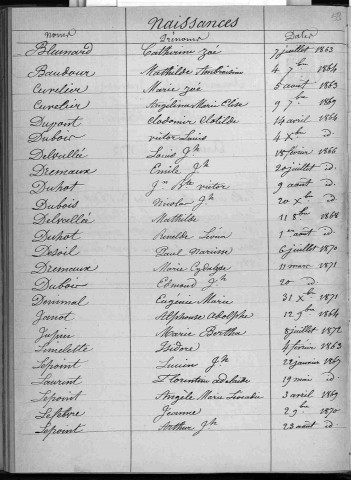 Naissances
Noms Prénoms Dates
Blainard Catherine Zoé 7 juillet 1863
Baudour Mathilde Ambroisine 4 7bre 1864
Cuvelier Marie Zoé 5 août 1863
Cuvelier Angelina Marie Elise 9 7bre 1869
Dupont Clodomir Clotilde 14 avril 1864
Dubois Victor Louis 4 Xbre d.
Delvallée Louis Jh 18 février 1866
Dremaux Emile Jh 20 juillet d.
Duhot Jn Bte Victor 9 août d.
Dubois Nicolas Jh 20 Xbre d.
Delvallée Mathilde 11 8bre 1868
Duhot Léonin 1er août d.
Desoil Paul Narcisse 6 juillet 1870
Dremaux Marie 11 mars 1871
Dubois Edmond Jh 20 d. d.
Denimal Eugénie Marie 31 Xbre 1871
Janot Alphonse Adolphe 12 9bre 1864
Jupin Marie Bertha 8 juillet 1872
Limelette Isidore 4 février 1863
Lepoint Lucien Jh 22 janvier 1869
Laurent Florentine Adélaïde 19 mai d.
Lepoint Angèle Marie 3 avril 1869
Lefèbre Jeanne 2 9bre 1870
Lepoint Arthur Jh 23 août d.